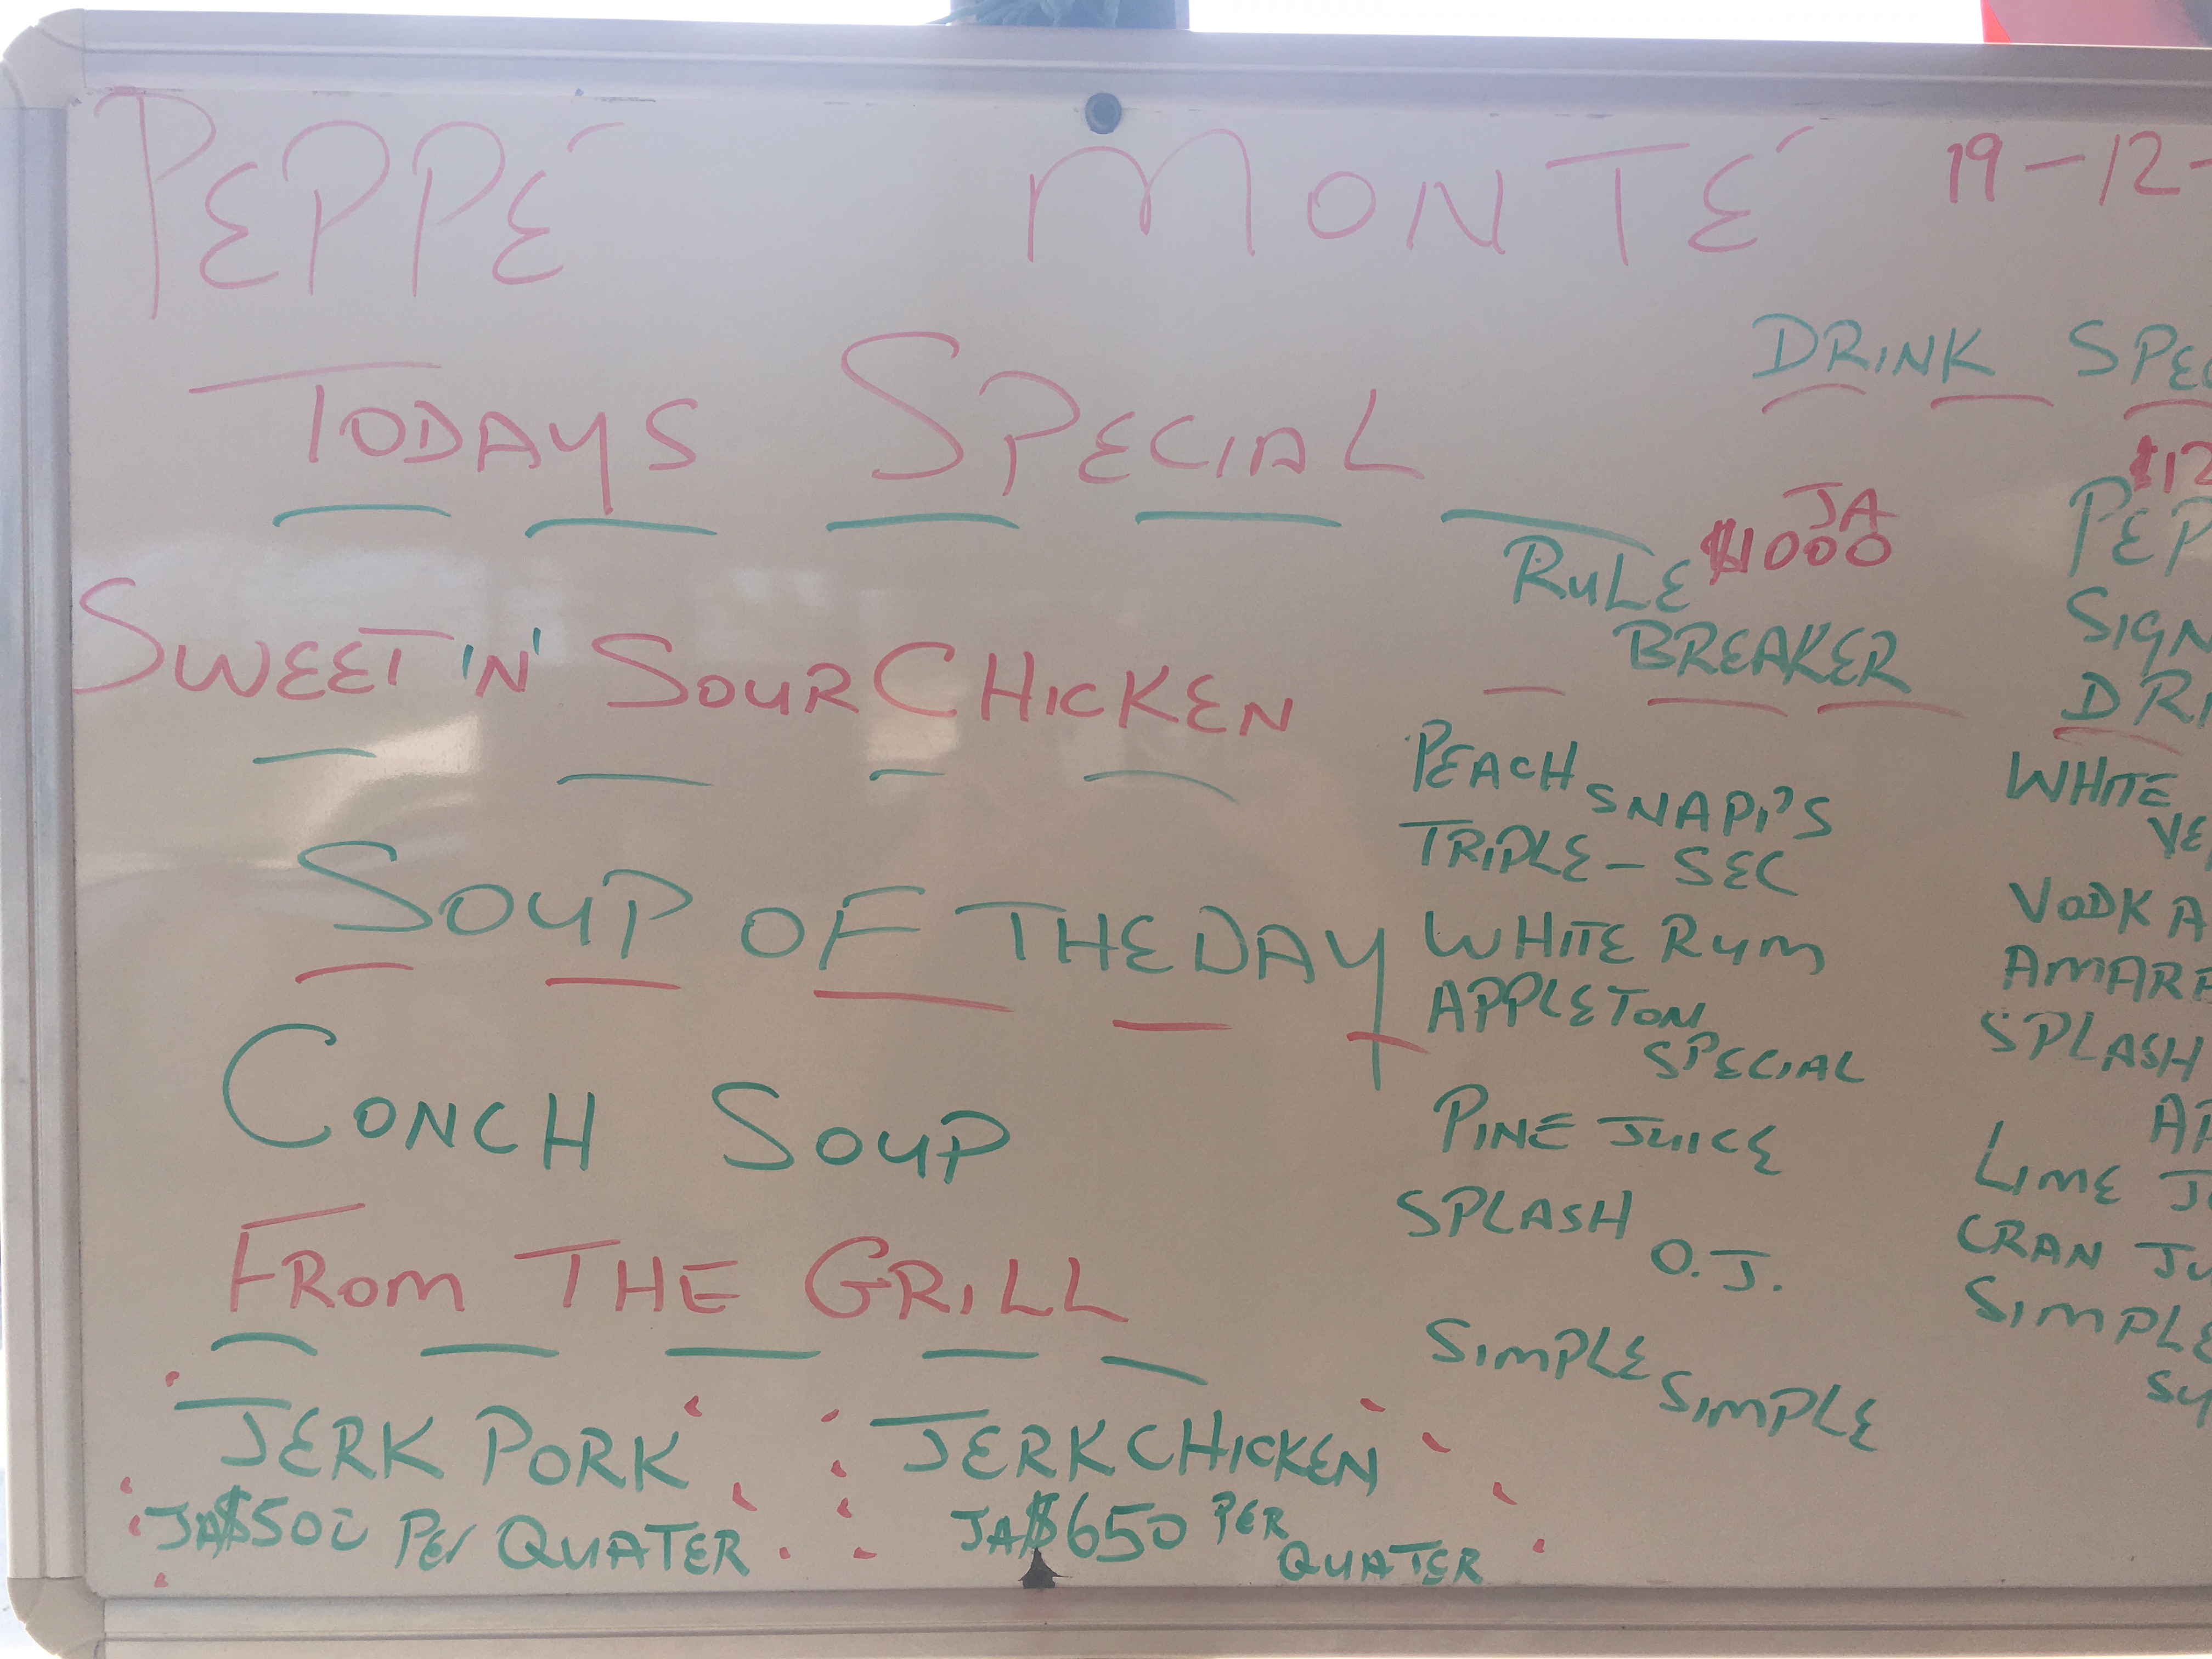 PEPPÉ MONTÉ 19-12-
TODAYS SPECIAL
SWEET 'N' SOUR CHICKEN
SOUP OF THE DAY
CONCH SOUP
FROM THE GRILL
JERK PORK
JA$500 PER QUATER
JERK CHICKEN
JA$650 PER
QUATER
DRINK SPEC
JA
$1000
RULE
BREAKER
PEACH SNAPI'S
TRIPLE-SEC
WHITE RUM
APPLETON
SPECIAL
PINE JUICE
SPLASH O.J.
SIMPLE SIMPLE
$12
PEP
SIGN
DRI
WHITE
VE
VODKA
AMARE
SPLASH
AP
LIME J
CRAN JU
SIMPLE
SY